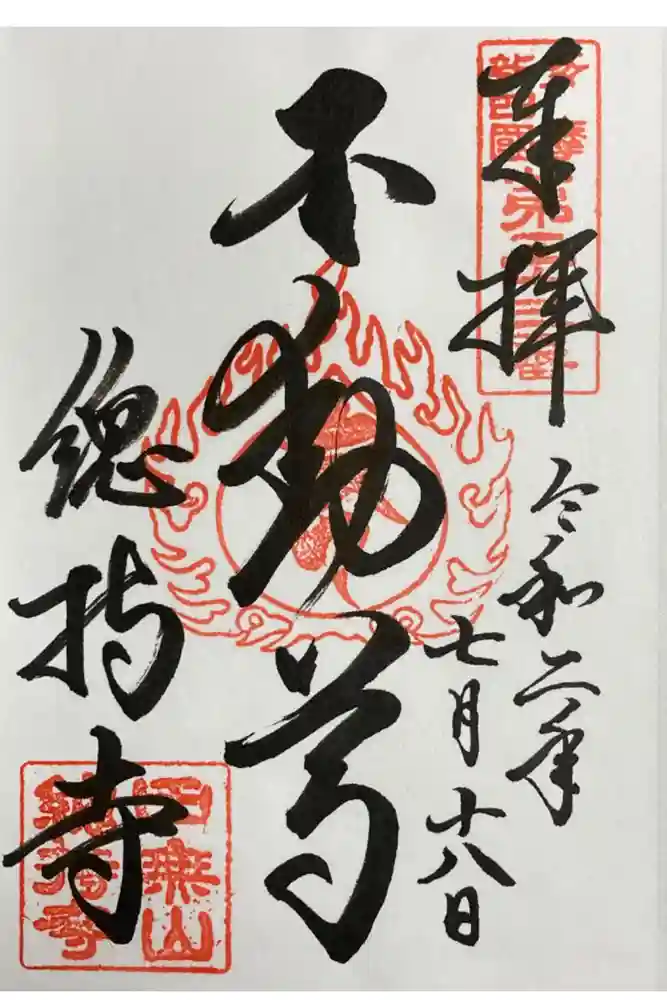 奉拝
令和二年
七月十八日
不動尊
總持寺
田無山
總持寺